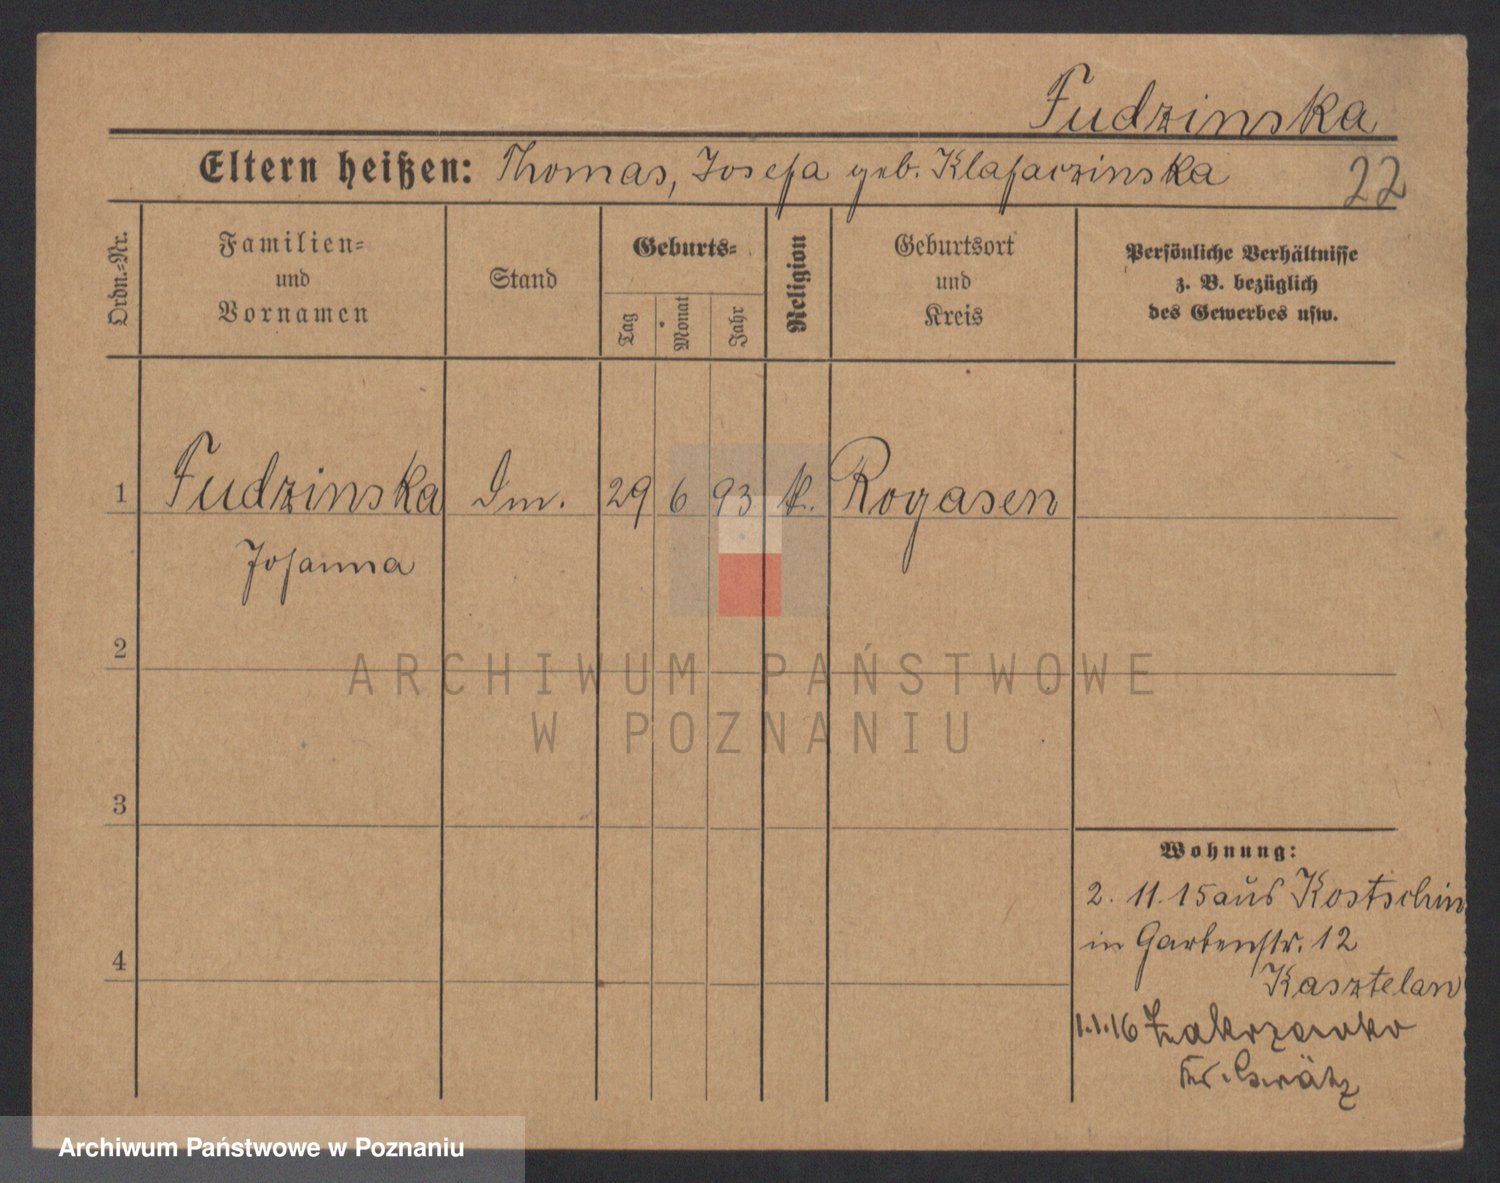 Fudzinska
Eltern heißen: Thomas, Josefa geb. Klafaczinska
22
Ordn.=Nr.
Familien=
und
Vornamen
Stand
Geburts=
Tag
Monat
Jahr
Religion
Geburtsort
und
Kreis
Persönliche Verhältnisse
z. B. bezüglich
des Gewerbes usw.
1 Fudzinska Dm. 29 6 93 k. Rogasen
Johanna
2
3
4
Wohnung:
2. 11. 15 aus Kostschin
in Gartenstr. 12
Kasztelan
1.1.16 Zakrzewko
Kr. Grätz
ARCHIWUM PAŃSTWOWE
W POZNANIU
Archiwum Państwowe w Poznaniu